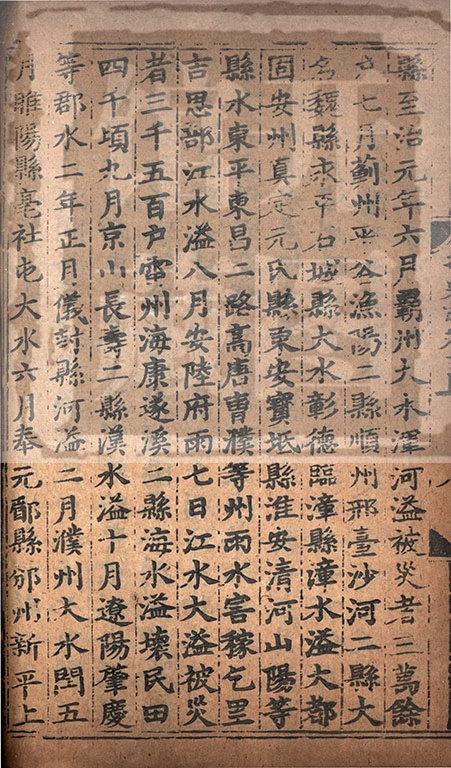 縣至治元年六月霸州大水渾河溢被災者三萬餘
戶七月薊州平谷漁陽二縣順州邢臺沙河二縣大
名魏縣永平石城縣大水彰德臨漳縣漳水溢大都
固安州真定元氏縣東安寶坻縣淮安清河山陽等
縣水東平東昌二路高唐曹濮等州雨水害稼乞里
吉思部江水溢八月安陸府雨七日江水大溢被災
者三千五百戶雷州海康遂溪二縣海水溢壞民田
四千頃九月京山長壽二縣漢水溢十月遼陽肇慶
等郡水二年正月儀封縣河溢二月濮州大水閏五
月睢陽縣亳社屯大水六月奉元郿縣邠州新平上